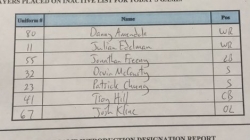 PLAYERS PLACED ON INACTIVE LIST FOR TODAY'S GAME
Uniform # Name Pos
80 Danny Amendola WR
11 Julian Edelman WR
55 Jonathan Freeny LB
32 Devin McCourty S
23 Patrick Chung S
41 Tre Hill CB
67 Josh Kline OL
INTRODUCTION DESIGNATION REPORT